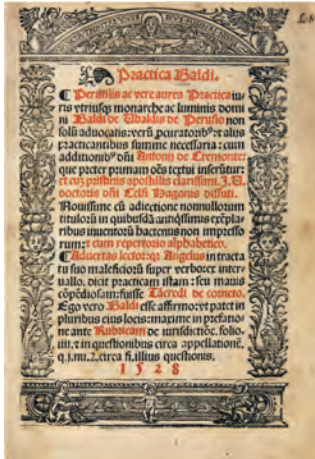 Practica Baldi.
¶ Perutilis ac vere aurea Practica iu-
ris vtriusq; monarche ac luminis domi
ni Baldi de Vbaldis de Perusio non
solũ aduocatis: verũ ꝓcuratorib⁹ ⁊ aliis
practicantibus summe necessaria: cum
additionib⁹ dñi Antonij de Cremonte:
que preter primam oẽs textui inserũtur:
et cuʒ pristinis apostillis clarissimi. J. U.
doctoris dñi Celsi Hugonis dissuti.
Nouissime cũ adiectione nonnullorum
titulorũ in quibusdã antiqissimis exẽpla-
ribus inuentorũ hactenus non impresso
rum: ⁊ cum repertorio alphabetico.
¶ Aduertas lector: qꝛ Angelus in tracta
tu suo maleficiorũ super verbo: ex inter-
uallo. dicit practicam istam: seu mauis
cõpẽdiosam: fuisse Tãcredi de corneto.
Ego vero Baldi esse affirmo: vt patet in
pluribus eius locis: maxime in prefatio-
ne ante Rubricam de iurisdictiõe. folio.
iiii. ⁊ in questionibus circa appellationẽ.
q. j. nu. 2. circa fi. illius questionis.
1528